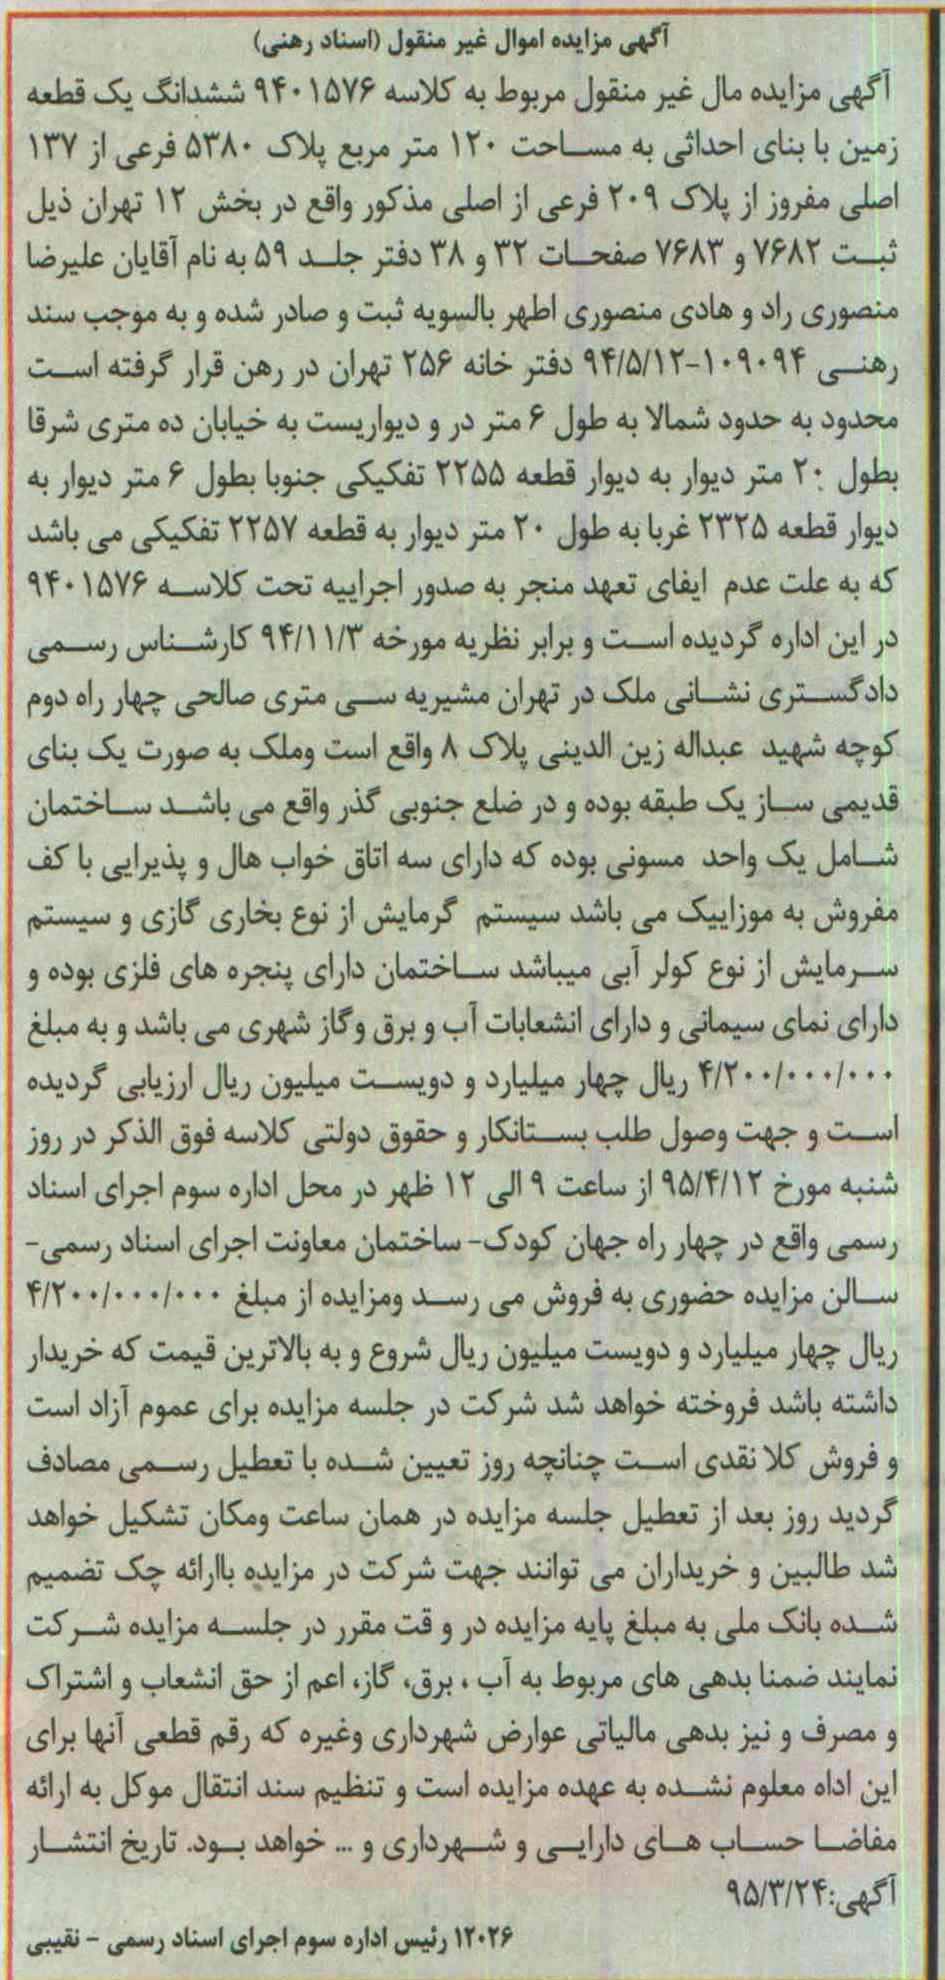 آگهی مزایده اموال غیر منقول (اسناد رهنی)
آگهی مزایده مال غیر منقول مربوط به کلاسه ۹۴۰۱۵۷۶ ششدانگ یک قطعه
زمین با بنای احداثی به مساحت ۱۲۰ متر مربع پلاک ۵۳۸۰ فرعی از ۱۳۷
اصلی مفروز از پلاک ۲۰۹ فرعی از اصلی مذکور واقع در بخش ۱۲ تهران ذیل
ثبت ۷۶۸۲ و ۷۶۸۳ صفحات ۳۲ و ۳۸ دفتر جلد ۵۹ به نام آقایان علیرضا
منصوری راد و هادی منصوری اطهر بالسویه ثبت و صادر شده و به موجب سند
رهنی ۱۰۹۰۹۴-۹۴/۵/۱۲ دفتر خانه ۲۵۶ تهران در رهن قرار گرفته است
محدود به حدود شمالا به طول ۶ متر در و دیواریست به خیابان ده متری شرقا
بطول ۲۰ متر دیوار به دیوار قطعه ۲۲۵۵ تفکیکی جنوبا بطول ۶ متر دیوار به
دیوار قطعه ۲۳۲۵ غربا به طول ۲۰ متر دیوار به قطعه ۲۲۵۷ تفکیکی می باشد
که به علت عدم ایفای تعهد منجر به صدور اجراییه تحت کلاسه ۹۴۰۱۵۷۶
در این اداره گردیده است و برابر نظریه مورخه ۹۴/۱۱/۳ کارشناس رسمی
دادگستری نشانی ملک در تهران مشیریه سی متری صالحی چهار راه دوم
کوچه شهید عبداله زین الدینی پلاک ۸ واقع است وملک به صورت یک بنای
قدیمی ساز یک طبقه بوده و در ضلع جنوبی گذر واقع می باشد ساختمان
شامل یک واحد مسونی بوده که دارای سه اتاق خواب هال و پذیرایی با کف
مفروش به موزاییک می باشد سیستم گرمایش از نوع بخاری گازی و سیستم
سرمایش از نوع کولر آبی میباشد ساختمان دارای پنجره های فلزی بوده و
دارای نمای سیمانی و دارای انشعابات آب و برق وگاز شهری می باشد و به مبلغ
۴/۲۰۰/۰۰۰/۰۰۰ ریال چهار میلیارد و دویست میلیون ریال ارزیابی گردیده
است و جهت وصول طلب بستانکار و حقوق دولتی کلاسه فوق الذکر در روز
شنبه مورخ ۹۵/۴/۱۲ از ساعت ۹ الی ۱۲ ظهر در محل اداره سوم اجرای اسناد
رسمی واقع در چهار راه جهان کودک- ساختمان معاونت اجرای اسناد رسمی-
سالن مزایده حضوری به فروش می رسد ومزایده از مبلغ ۴/۲۰۰/۰۰۰/۰۰۰
ریال چهار میلیارد و دویست میلیون ریال شروع و به بالاترین قیمت که خریدار
داشته باشد فروخته خواهد شد شرکت در جلسه مزایده برای عموم آزاد است
و فروش کلا نقدی است چنانچه روز تعیین شده با تعطیل رسمی مصادف
گردید روز بعد از تعطیل جلسه مزایده در همان ساعت ومکان تشکیل خواهد
شد طالبین و خریداران می توانند جهت شرکت در مزایده باارائه چک تضمیم
شده بانک ملی به مبلغ پایه مزایده در و قت مقرر در جلسه مزایده شرکت
نمایند ضمنا بدهی های مربوط به آب ، برق، گاز، اعم از حق انشعاب و اشتراک
و مصرف و نیز بدهی مالیاتی عوارض شهرداری وغیره که رقم قطعی آنها برای
این اداه معلوم نشده به عهده مزایده است و تنظیم سند انتقال موکل به ارائه
مفاضا حساب های دارایی و شهرداری و ... خواهد بود. تاریخ انتشار
آگهی:۹۵/۳/۲۴
۱۲۰۲۶ رئیس اداره سوم اجرای اسناد رسمی - نقیبی